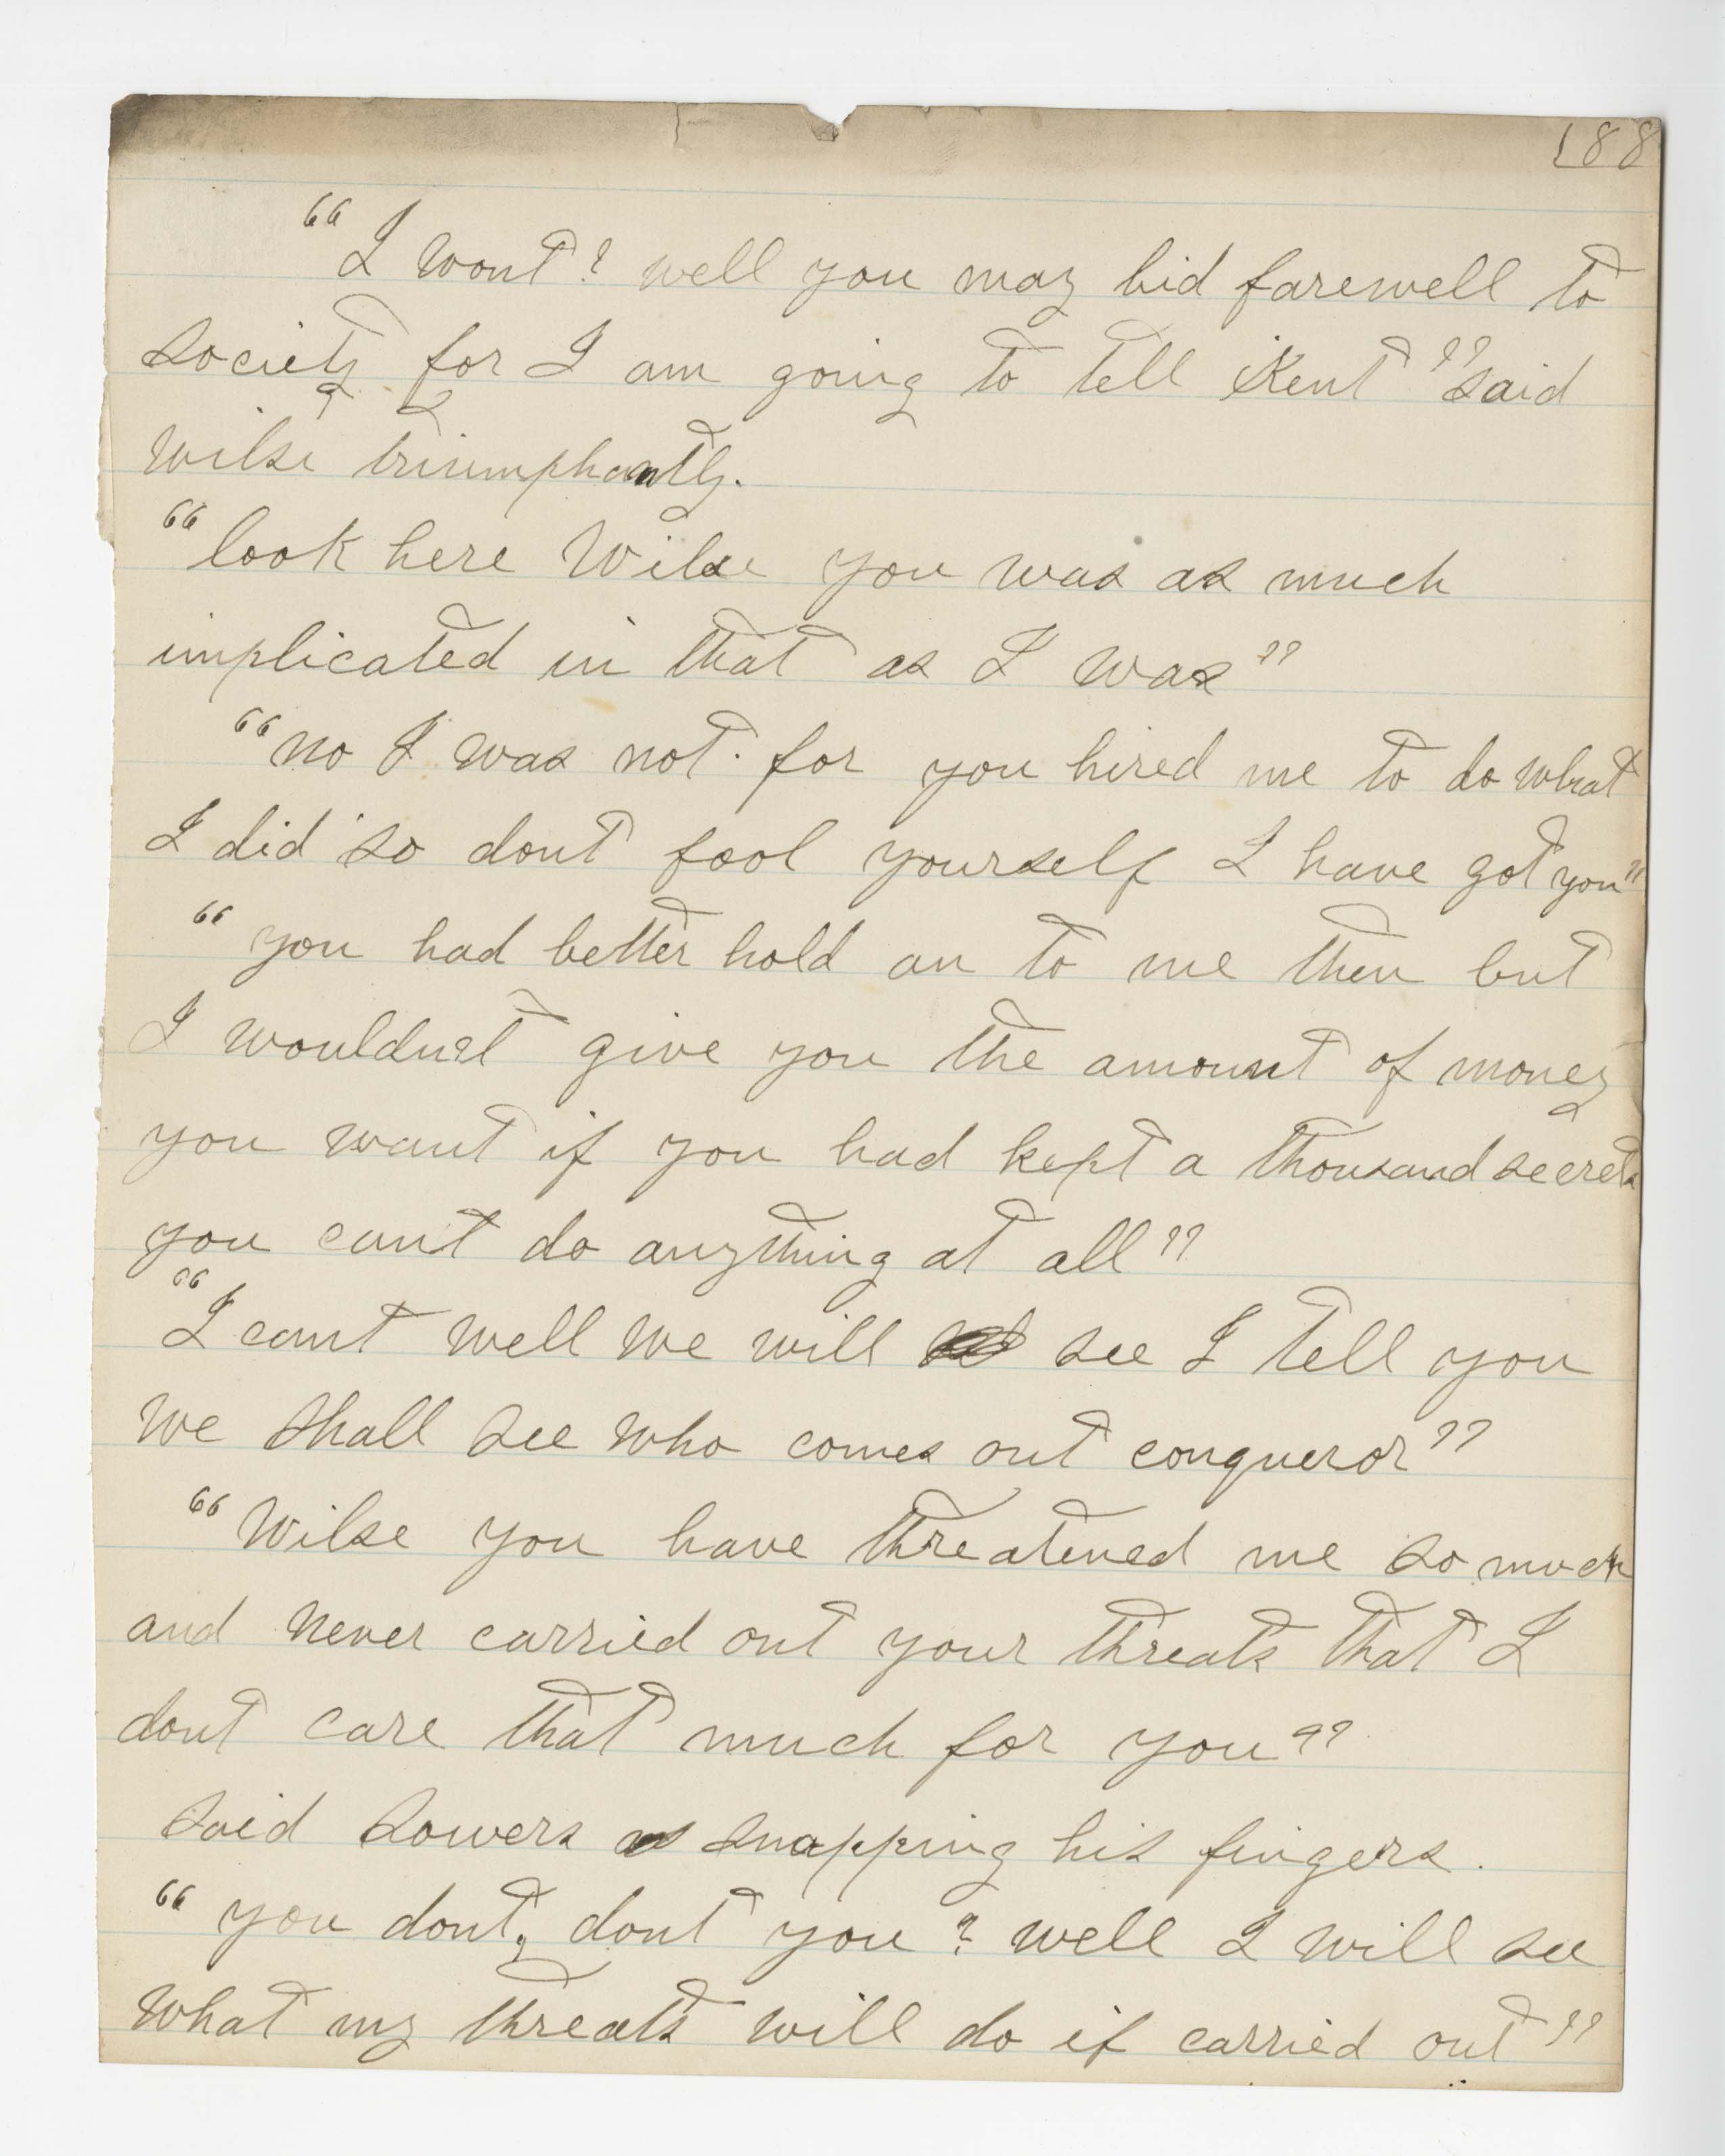 188
"I wont? well you may bid farewell to
society for I am going to tell Kent" said
Wilse triumphantly.
"look here Wilse you was as much
implicated in that as I was"
"no I was not. for you hired me to do what
I did so dont fool yourself I have got you"
"you had better hold on to me then but
I wouldn't give you the amount of money
you want if you had kept a thousand secrets
you can't do anything at all"
"I cant well we will see I tell you
we shall see who comes out conqueror"
"Wilse you have threatened me so much
and never carried out your threats that I
dont care that much for you"
said Sowers snapping his fingers.
"you dont, dont you? well I will see
what my threats will do if carried out"